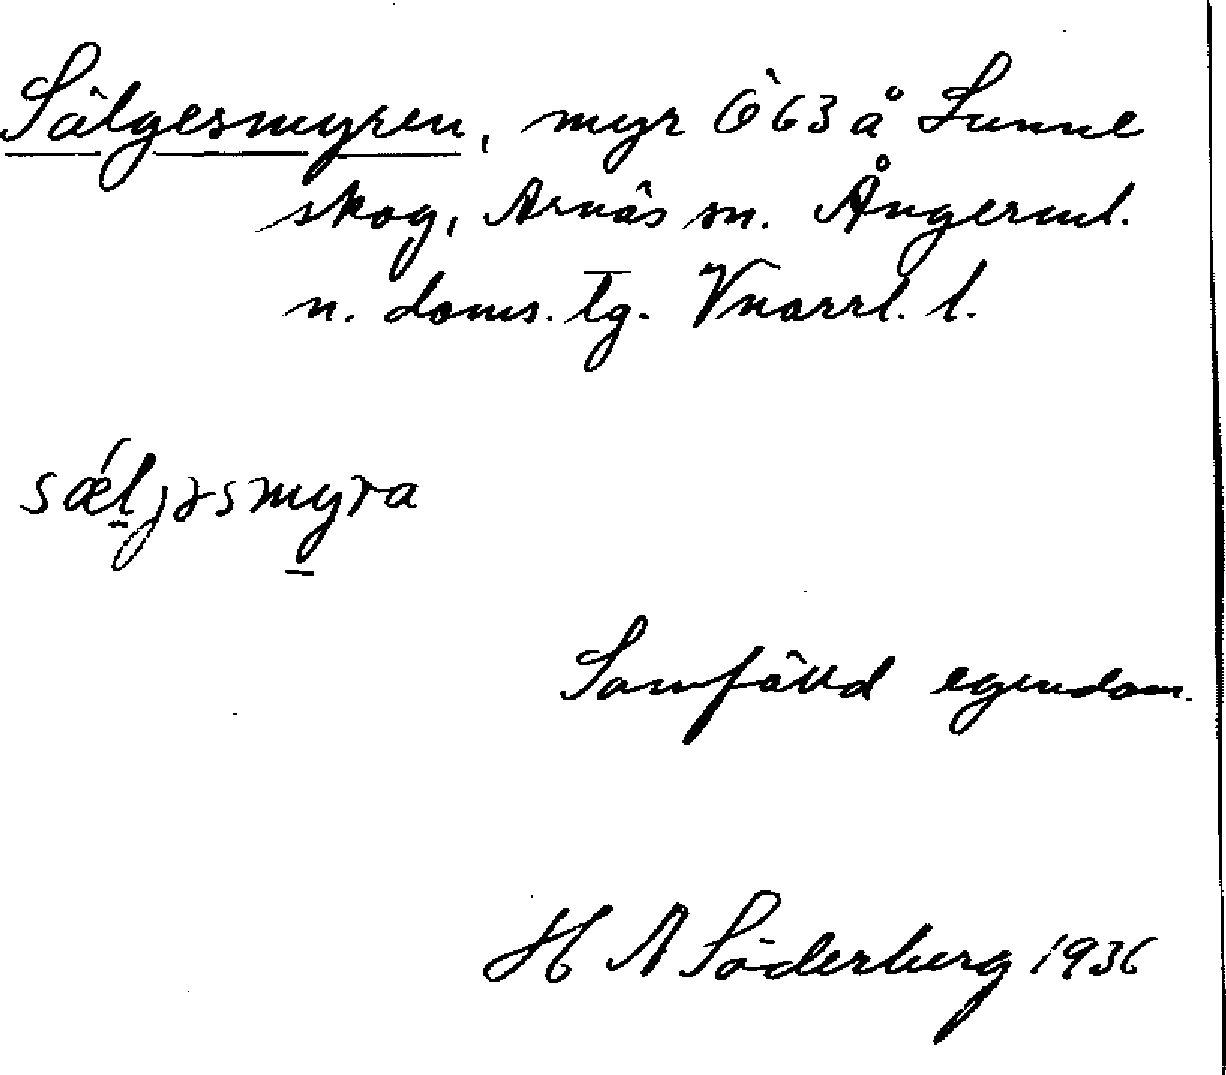 Sälgesmyren, myr Ö 63 å Sunne
skog, Arnäs sn. Ångerml.
n. doms. tg. Vnorrl. l.
sæljəsmyra
Samfälld egendom.
H A Söderberg 1936